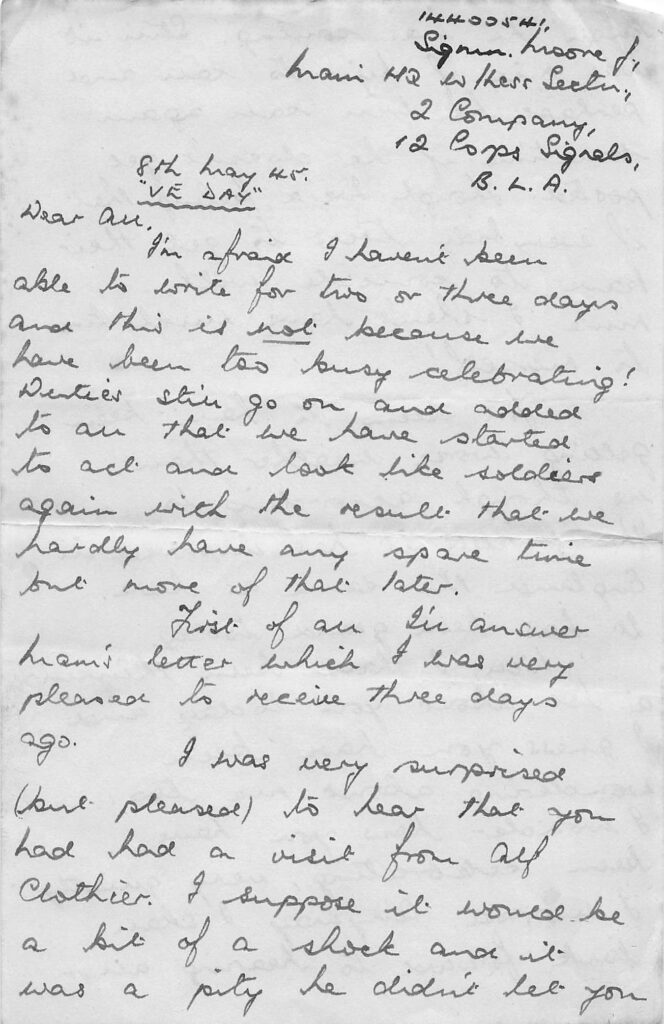 14400541,
Signm. Moore J.,
Main HQ W/less Sectn.,
2 Company,
12 Corps Signals,
B. L. A.
8th May 45.
"VE DAY"
Dear All,
I'm afraid I haven't been
able to write for two or three days
and this is not because we
have been too busy celebrating!
Duties still go on and added
to all that we have started
to act and look like soldiers
again with the result that we
hardly have any spare time
but more of that later.
First of all I'll answer
Mam's letter which I was very
pleased to receive three days
ago.
I was very surprised
(but pleased) to hear that you
had had a visit from Alf
Clothier. I suppose it would be
a bit of a shock and it
was a pity he didn't let you